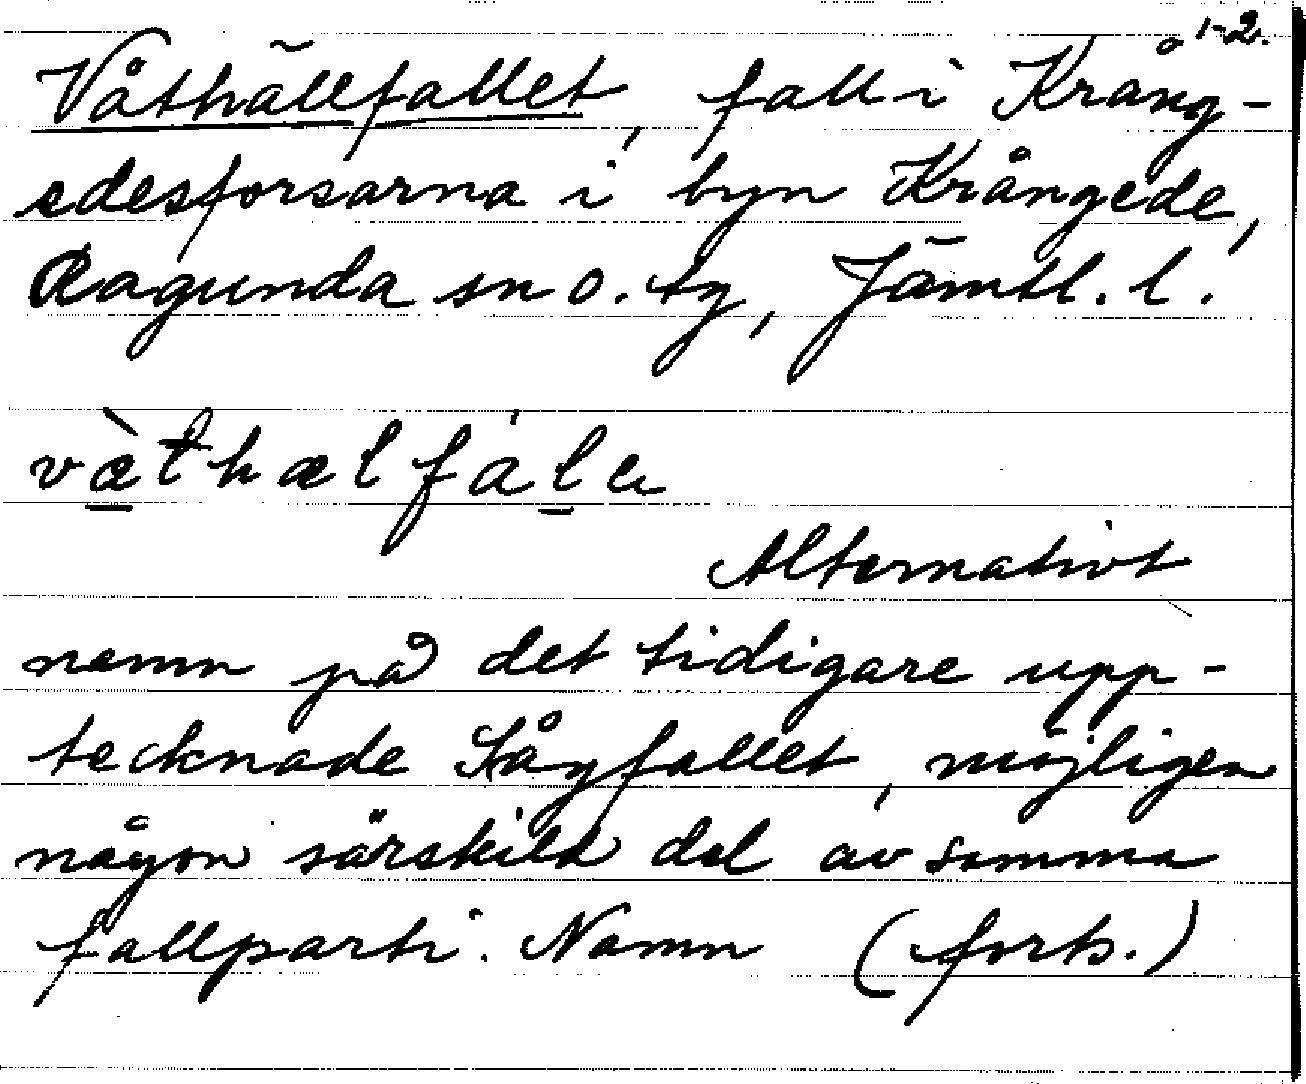 1-2.
Våthällfallet, fall i Krång-
edesforsarna i byn Krångede,
Ragunda sn o. tg, Jämtl. l.
væ̀thælfála
Alternativt
namn på det tidigare upp-
tecknade Sågfallet, möjligen
någon särskild del av samma
fallparti. Namn (forts.)